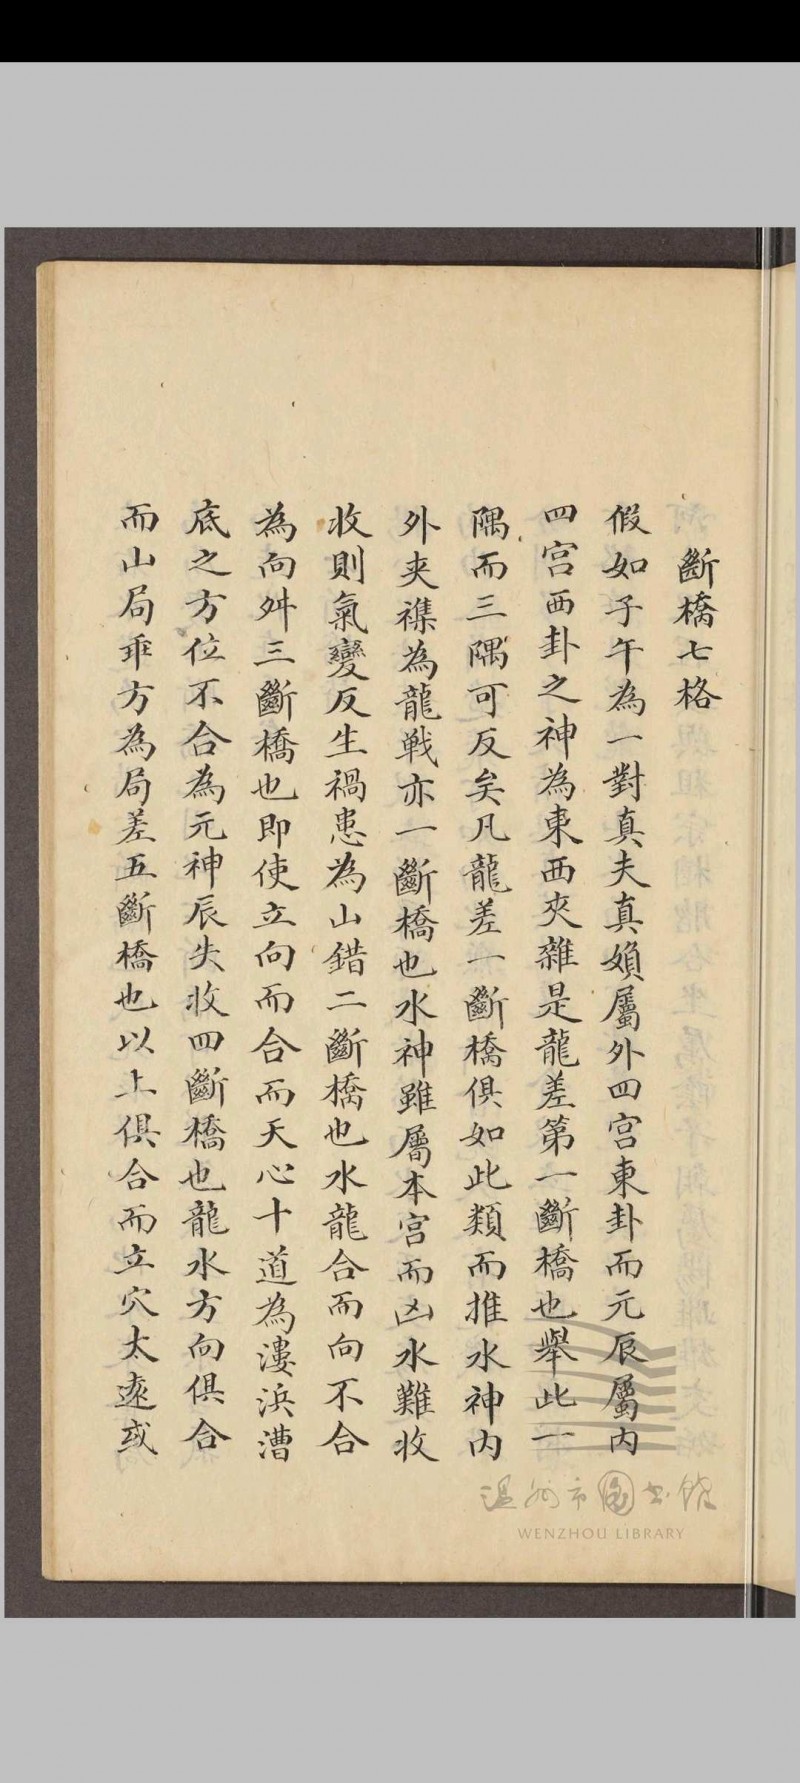 斷橋七格
假如子午為一對真夫真婦屬外四宮東卦而元辰屬內
四宮西卦之神為東西夾雜是龍差第一斷橋也舉此一
隅而三隅可反矣凡龍差一斷橋俱如此類而推水神內
外夾襍為龍戰亦一斷橋也水神雖屬本宮而凶水難收
收則氣變反生禍患為山錯二斷橋也水龍合而向不合
為向舛三斷橋也即使立向而合而天心十道為漊浜漕
底之方位不合為元神辰失收四斷橋也龍水方向俱合
而山局乖方為局差五斷橋也以上俱合而立穴太遠或
温州市图书馆
WENZHOU LIBRARY